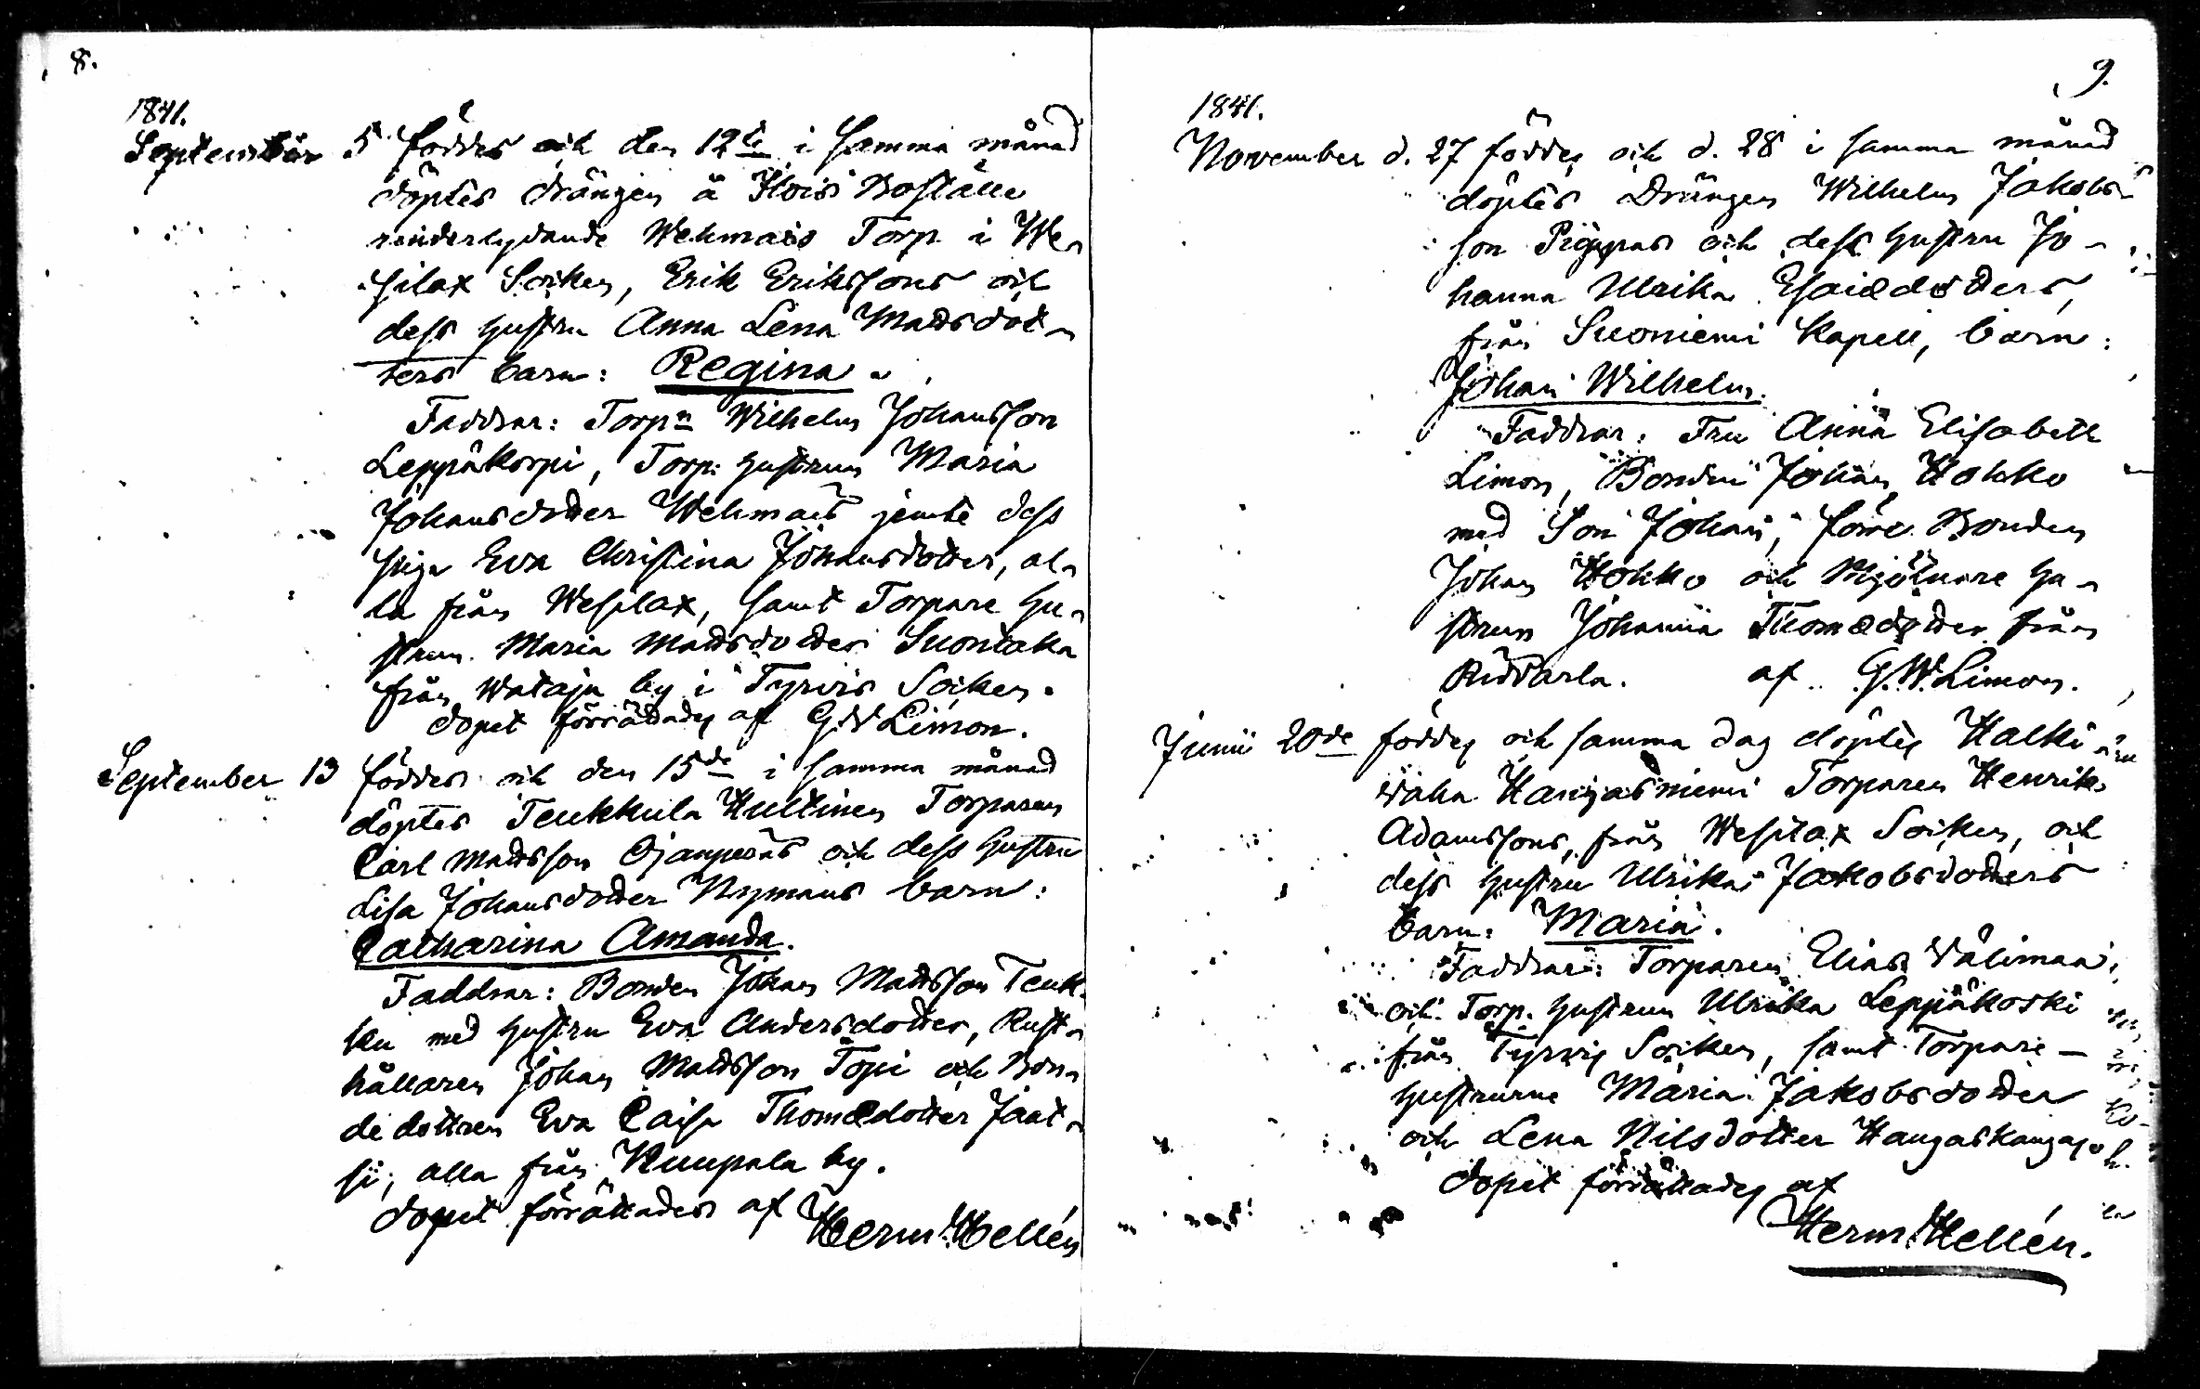 8.
1841.
September 5 föddes och den 12te i samma månad
döptes drängen å Hois Boställe
underlydande Wehmais Torp i We-
silax Socken, Erik Erikssons och
dess hustru Anna Lena Mattsdot-
ters barn: Regina.
Faddrar: Torpn Wilhelm Johansson
Leppäkorpi, Torp: hustrun Maria
Johansdotter Wehmais jemte dess
piga Eva Christina Johansdotter, al-
la från Wesilax, samt Torpare hu-
strun Maria Mattsdotter Suontaka
från Wataja by i Tyrvis Socken.
Dopet förrättades af G W Limon.
September 13 föddes och den 15de i samma månad
döptes Teukkula Hultinen Torparen
Carl Mattsson Ojanperäs och dess hustru
Lisa Johansdotter Nymans barn:
Catharina Amanda.
Faddrar: Bonden Johan Mattsson Teuk-
ku med hustru Eva Andersdotter, Rust-
hållaren Johan Mattsson Töpi och Bon-
de dottren Eva Caisa Thomædotter Jaat-
si, alla från Kuupala by.
Dopet förrättades af Herm. Hellén
9.
1841.
November d. 27 föddes och d. 28 i samma månad
döptes Drängen Wilhelm Jakobs-
son Piippas och dess hustru Jo-
hanna Ulrika Esaiædotters,
från Suoniemi Kapell, barn:
Johan Wilhelm.
Faddrar: Fru Anna Elisabeth
Limon, Bonden Johan Hohko
med Son Johan, förre Bonden
Johan Hohko och Mjölnare hu-
strun Johanna Thomædotter från
Riddarla. af G. W. Limon.
Junii 20de föddes och samma dag döptes Halki
Waha Hangasniemi Torparen Henrik
Adamssons, från Wesilax Socken, och
dess hustru Ulrika Jakobsdotters
barn: Maria.
Faddrar: Torparen Elias Välimaa,
och Torp. hustrun Ulrika Leppäkoski
från Tyrvis Socken, samt Torpare-
hustrurne Maria Jakobsdotter
och Lena Nilsdotter Hangaskanga
Dopet förrättades af
Herm. Hellén.